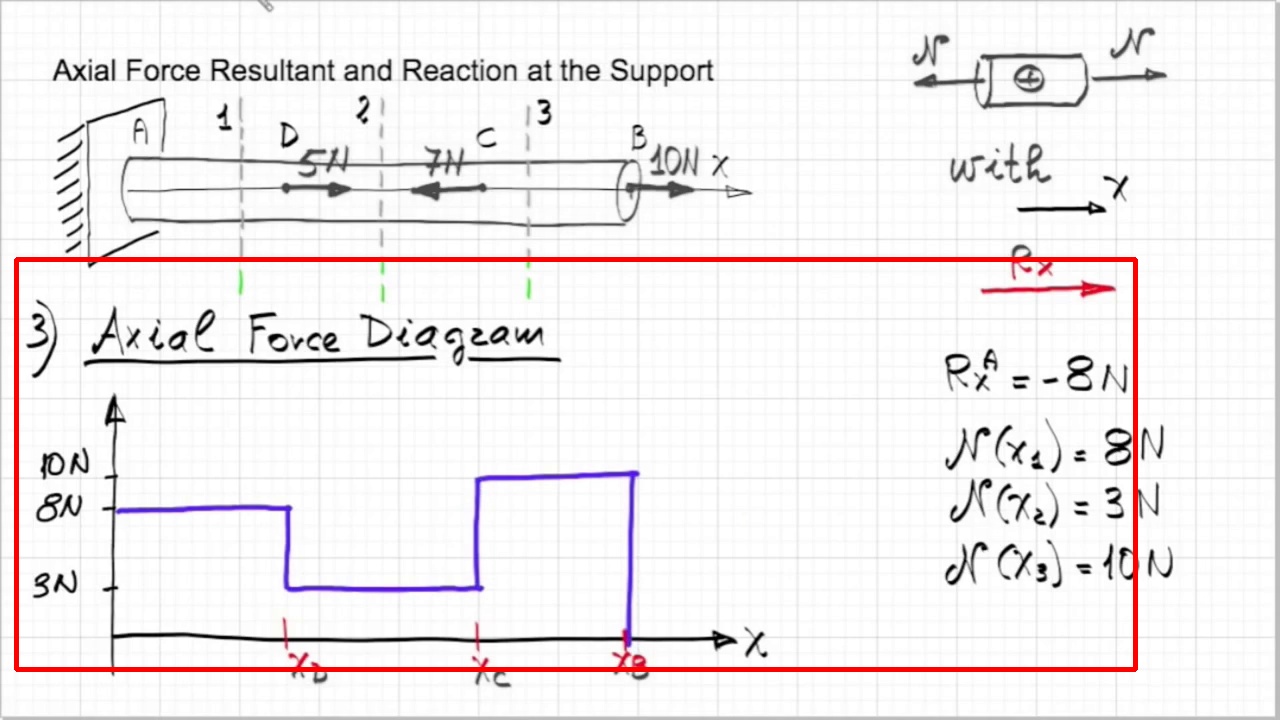 Axial Force Resultant and Reaction at the Support
A 1 D 5N 2 7N C 3 B 10N x
N + N
with
x
Rx
3) Axial Force Diagram
10N
8N
3N
x
xD xC xB
RxA = -8N
N(x1) = 8N
N(x2) = 3N
N(x3) = 10N